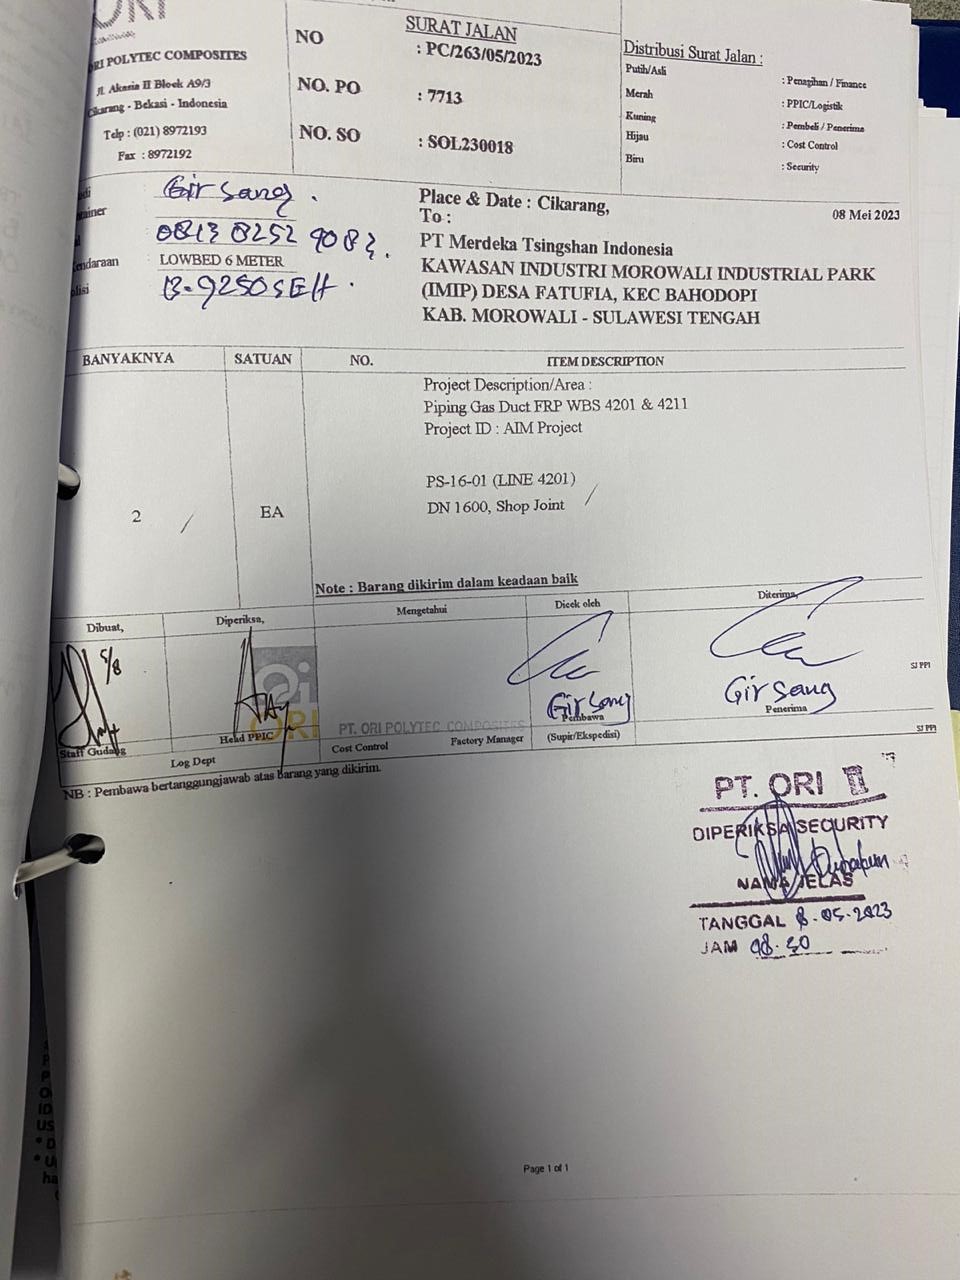 ORI
ORI POLYTEC COMPOSITES
Jl. Akasia II Block A9/3
Cikarang - Bekasi - Indonesia
Telp : (021) 8972193
Fax : 8972192
SURAT JALAN
NO : PC/263/05/2023
NO. PO : 7713
NO. SO : SOL230018
Distribusi Surat Jalan :
Putih/Asli : Penagihan / Finance
Merah : PPIC/Logistik
Kuning : Pembeli / Penerima
Hijau : Cost Control
Biru : Security
Girsang.
tainer
0813 8252 9083.
endaraan LOWBED 6 METER
olisi B-9250SEH.
Place & Date : Cikarang, 08 Mei 2023
To :
PT Merdeka Tsingshan Indonesia
KAWASAN INDUSTRI MOROWALI INDUSTRIAL PARK
(IMIP) DESA FATUFIA, KEC BAHODOPI
KAB. MOROWALI - SULAWESI TENGAH
BANYAKNYA SATUAN NO. ITEM DESCRIPTION
Project Description/Area :
Piping Gas Duct FRP WBS 4201 & 4211
Project ID : AIM Project
PS-16-01 (LINE 4201)
2 / EA DN 1600, Shop Joint /
Note : Barang dikirim dalam keadaan baik
Dibuat, Diperiksa, Mengetahui Dicek oleh Diterima,
5/8
ORI
PT. ORI POLYTEC COMPOSITES
Girsang
Girsang
SJ PPI
Staff Gudang Head PPIC Cost Control Factory Manager Pembawa Penerima
(Supir/Ekspedisi)
SJ PPI
Log Dept
NB : Pembawa bertanggungjawab atas barang yang dikirim.
PT. ORI
DIPERIKSA SECURITY
NAMA JELAS
TANGGAL 8-05-2023
JAM 08.50
Page 1 of 1